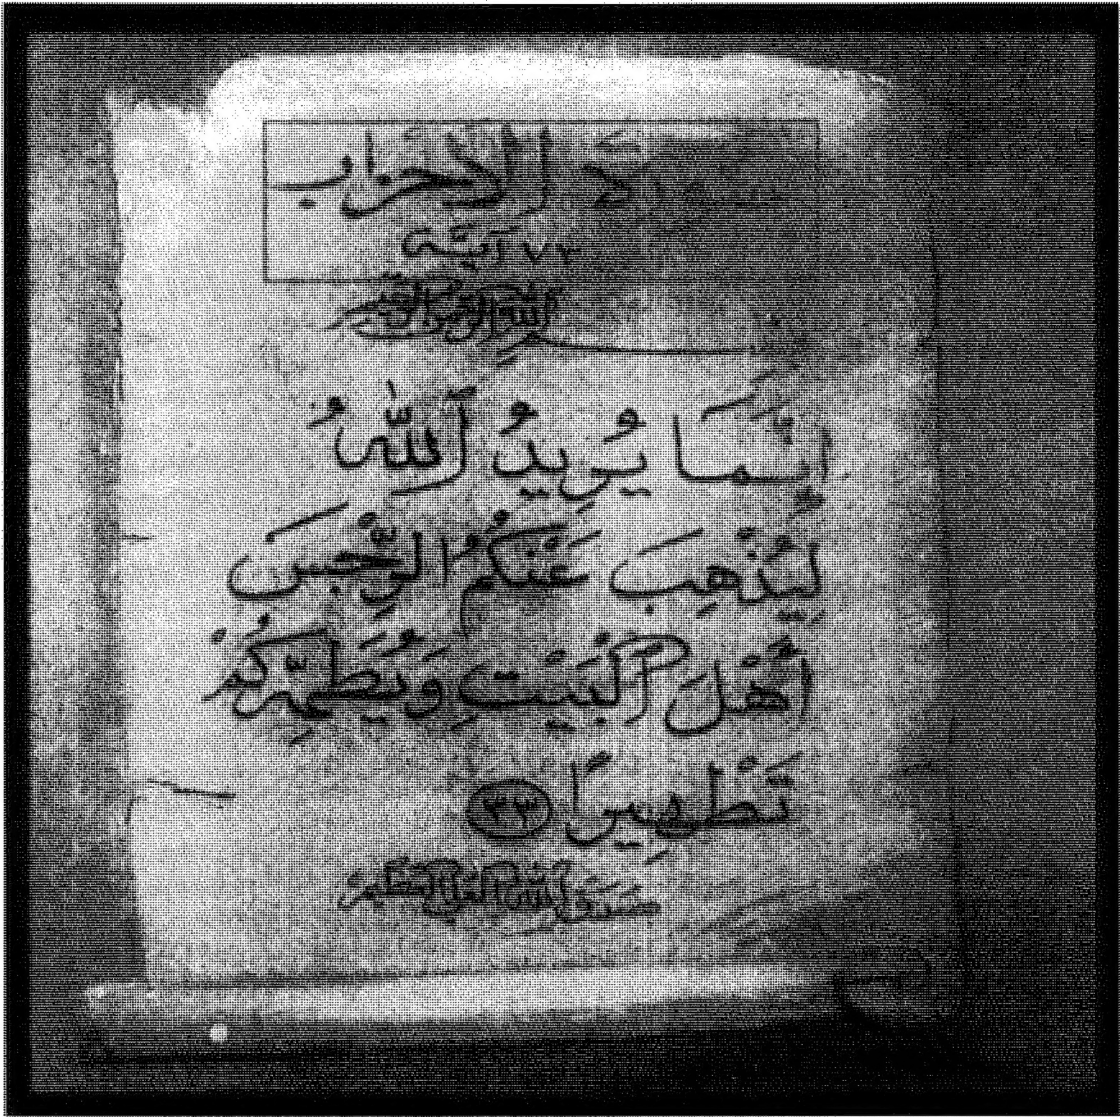 سورة الاحزاب
٧٣ آية
بسم الله الرحمن الرحيم
إِنَّمَا يُرِيدُ ٱللَّهُ
لِيُذْهِبَ عَنكُمُ الرِّجْسَ
أَهْلَ ٱلْبَيْتِ وَيُطَهِّرَكُمْ
تَطْهِيرًا ٣٣
صدق الله العلي العظيم